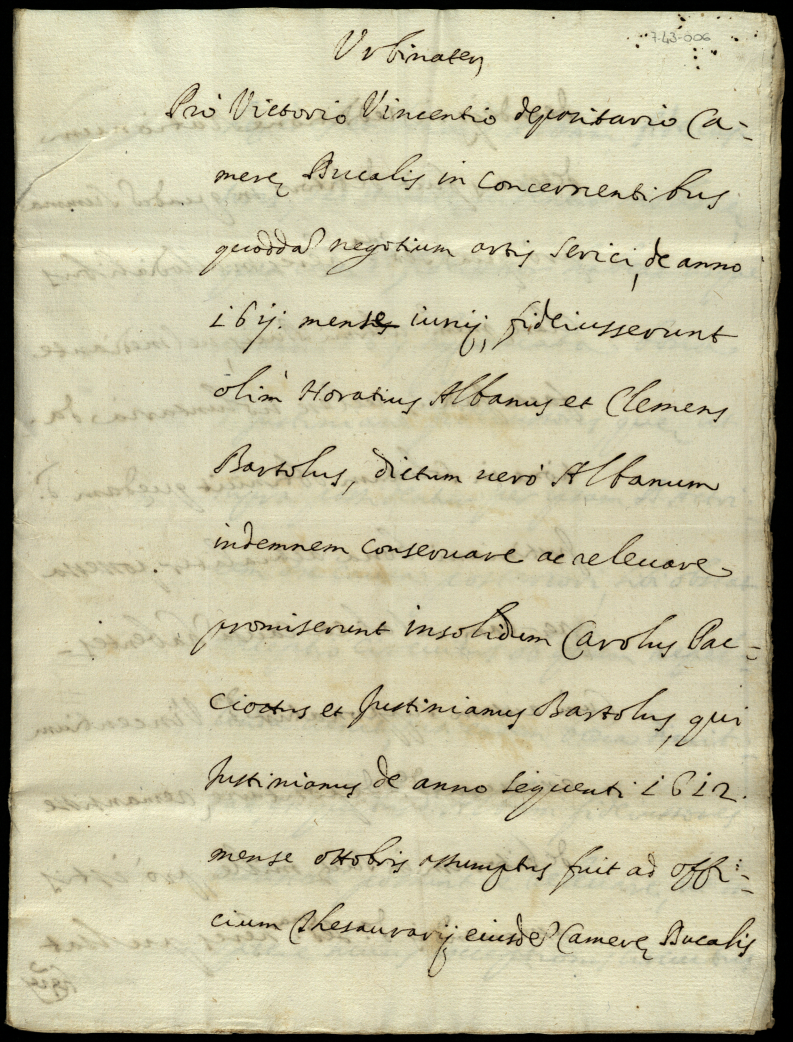 7-43-006
Urbinaten
Pro Victorio Vincentio depositario Ca-
meræ Ducalis in concernentibus
quodda negotium artis serici, de anno
1611. mense iunij, fideiusserunt
olim Horatius Albanus et Clemens
Bartolus, dictum uero Albanum
indemnem conseruare ac releuare
promiserunt insolidum Carolus Pac-
ciottus et Justinianus Bartolus, qui
Justinianus de anno sequenti 1612.
mense ottobris assumptus fuit ad offi-
cium Thesaurarij eiusde Cameræ Ducalis